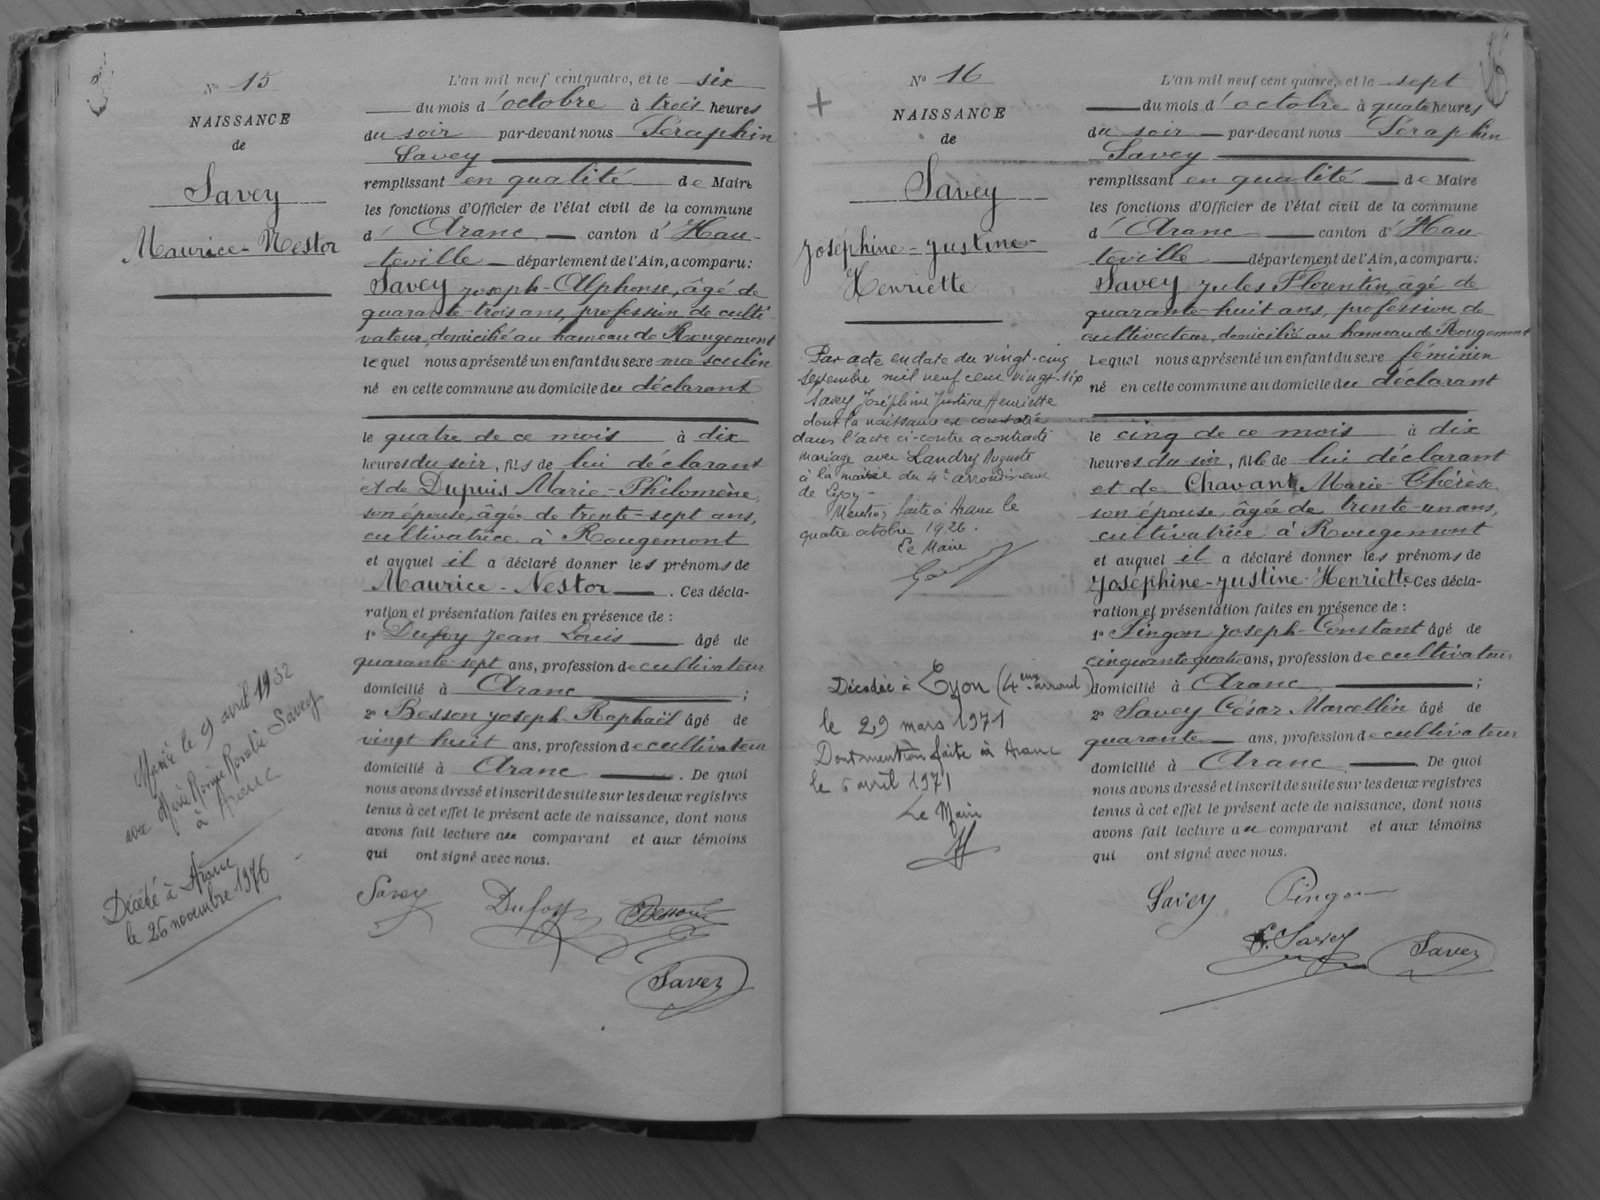 N° 15
NAISSANCE
de
Savey
Maurice-Nestor
Marié le 9 avril 1932
avec Marie Rosalie Savey
à Aranc
Décédé à Aranc
le 26 novembre 1976
L'an mil neuf cent quatre, et le six
du mois d'octobre à trois heures
du soir par-devant nous Séraphin
Savey
remplissant en qualité de Maire
les fonctions d'Officier de l'état civil de la commune
d'Aranc canton d'Hau-
teville département de l'Ain, a comparu:
Savey Joseph-Alphonse, âgé de
quarante-trois ans, profession de culti-
vateur, domicilié au hameau de Rougemont
lequel nous a présenté un enfant du sexe masculin
né en cette commune au domicile du déclarant
le quatre de ce mois à dix
heures du soir, fils de lui déclarant
et de Dupuis Marie-Philomène,
son épouse, âgée de trente-sept ans,
cultivatrice à Rougemont
et auquel il a déclaré donner les prénoms de
Maurice-Nestor. Ces décla-
ration et présentation faites en présence de :
1° Dufoy Jean Louis âgé de
quarante-sept ans, profession de cultivateur
domicilié à Aranc ;
2° Besson Joseph-Raphaël âgé de
vingt huit ans, profession de cultivateur
domicilié à Aranc . De quoi
nous avons dressé et inscrit de suite sur les deux registres
tenus à cet effet le présent acte de naissance, dont nous
avons fait lecture au comparant et aux témoins
qui ont signé avec nous.
Savey Dufoy Besson
Savey
N° 16
NAISSANCE
de
Savey
Joséphine-Justine-
Henriette
Par acte en date du vingt-cinq
septembre mil neuf cent vingt-six
Savey Joséphine Justine Henriette
dont la naissance est constatée
dans l'acte ci-contre a contracté
mariage avec Landry Auguste
à la mairie du 4e arrondissement
de Lyon -
Mention faite à Aranc le
quatre octobre 1926.
Le Maire
Décédée à Lyon (4eme arrond)
le 29 mars 1971
Dont mention faite à Aranc
le 6 avril 1971
Le Maire
L'an mil neuf cent quatre, et le sept
du mois d'octobre à quatre heures
du soir par-devant nous Séraphin
Savey
remplissant en qualité de Maire
les fonctions d'Officier de l'état civil de la commune
d'Aranc canton d'Hau-
teville département de l'Ain, a comparu:
Savey Jules Florentin, âgé de
quarante-huit ans, profession de
cultivateur, domicilié au hameau de Rougemont
lequel nous a présenté un enfant du sexe féminin
né en cette commune au domicile du déclarant
le cinq de ce mois à dix
heures du soir, fille de lui déclarant
et de Chavant Marie-Thérèse
son épouse, âgée de trente-un ans,
cultivatrice à Rougemont
et auquel il a déclaré donner les prénoms de
Joséphine-Justine-Henriette. Ces décla-
ration et présentation faites en présence de :
1° Pingon Joseph-Constant âgé de
cinquante quatre ans, profession de cultivateur
domicilié à Aranc ;
2° Savey César Marcellin âgé de
quarante ans, profession de cultivateur
domicilié à Aranc . De quoi
nous avons dressé et inscrit de suite sur les deux registres
tenus à cet effet le présent acte de naissance, dont nous
avons fait lecture au comparant et aux témoins
qui ont signé avec nous.
Savey Pingon
S. Savey Savey